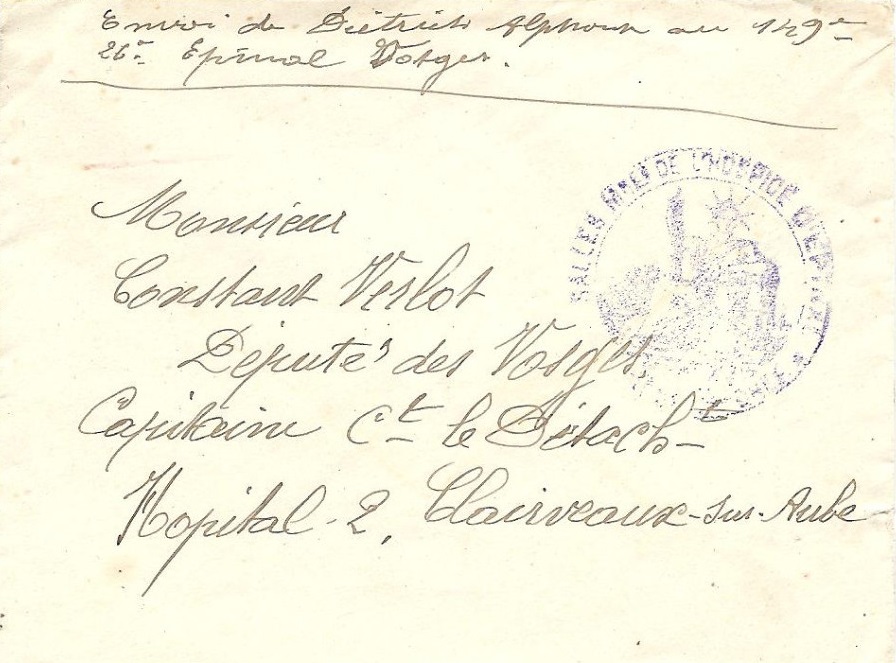 Envoi de Diétrich Alphonse au 149e
26e Epinal Vosges.
SALLES MILres DE L'HOSPICE D'EPINAL
Monsieur
Constant Verlot
Député des Vosges
Capitaine Ct le Détacht
Hopital-2, Clairveaux-sur-Aube